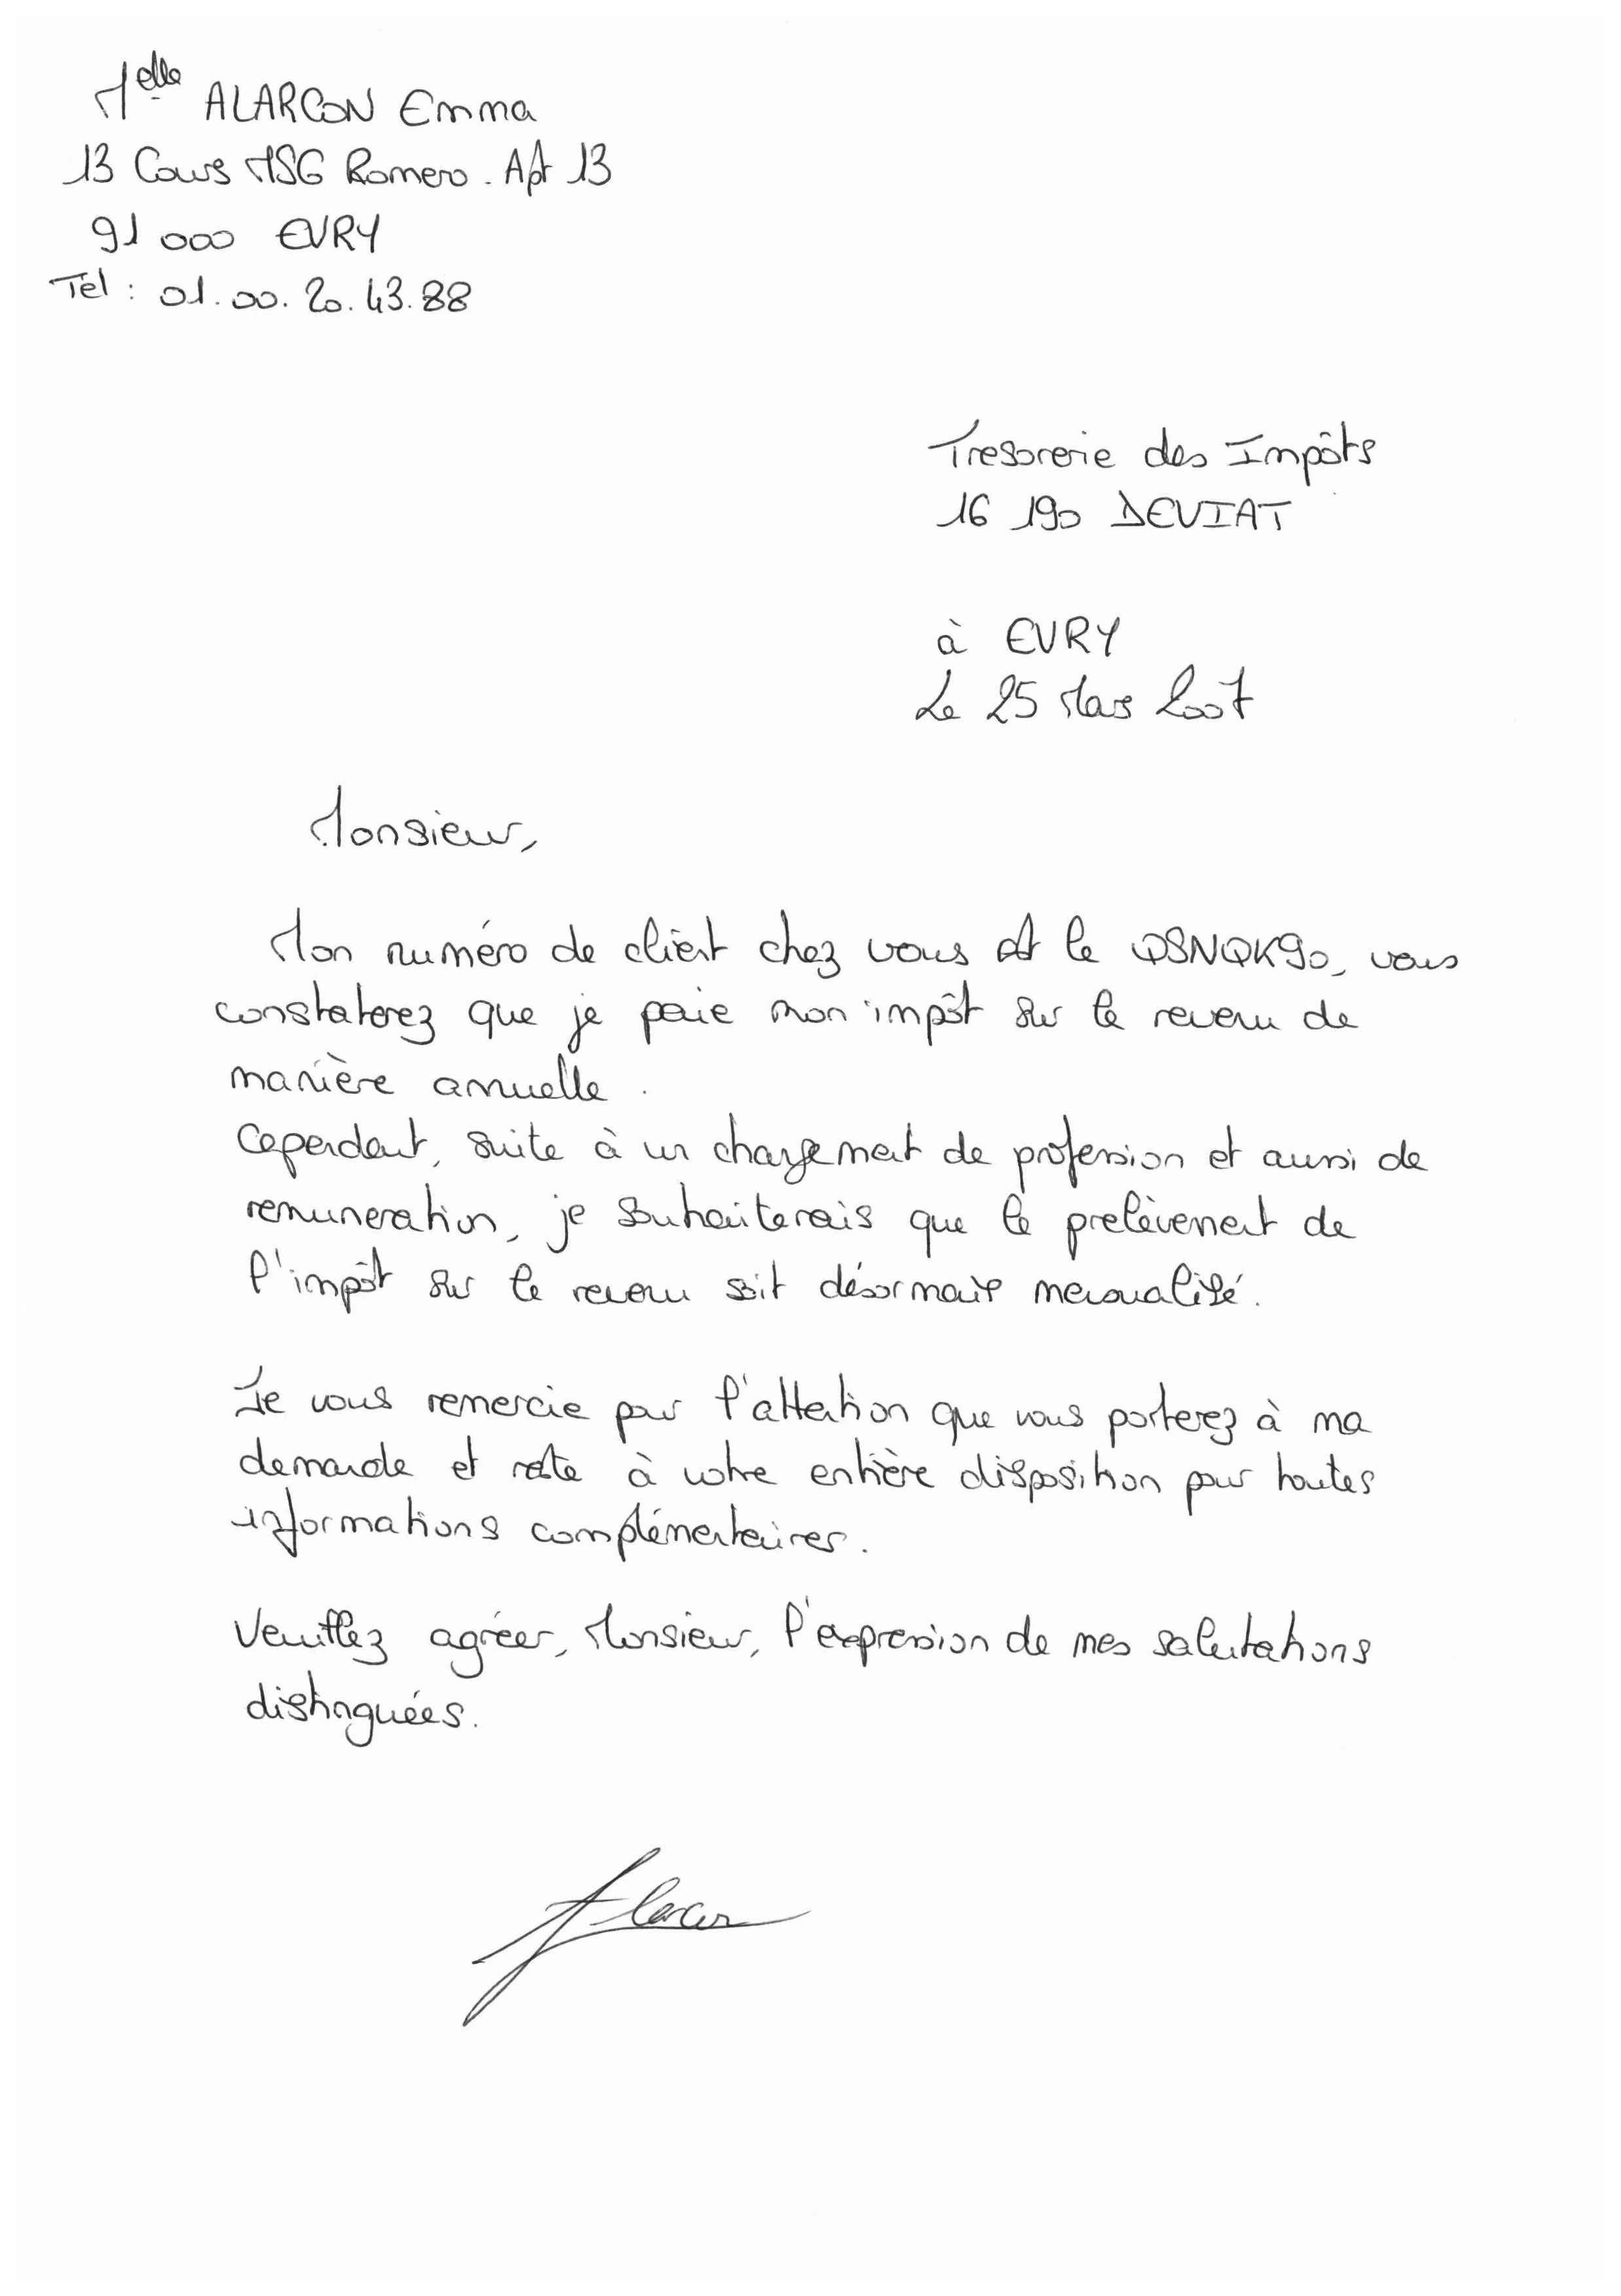 Melle ALARCON Emma
13 Cours MSG Romero. Apt 13
91 000 EVRY
Tel : 01.00.20.43.88
Tresorerie des Impôts
16 190 DEVIAT
à EVRY
Le 25 Mars 2007
Monsieur,
Mon numéro de client chez vous est le QSNQK90, vous
constaterez que je paie mon impôt sur le revenu de
manière annuelle.
Cependant, suite à un changement de profession et aussi de
remuneration, je souhaiterais que le prelèvement de
l'impôt sur le revenu soit désormais mensualisé.
Je vous remercie par l'attention que vous porterez à ma
demande et reste à votre entière disposition pour toutes
informations complémentaires.
Veuillez agréer, Monsieur, l'expression de mes salutations
distinguées.
Alarcon